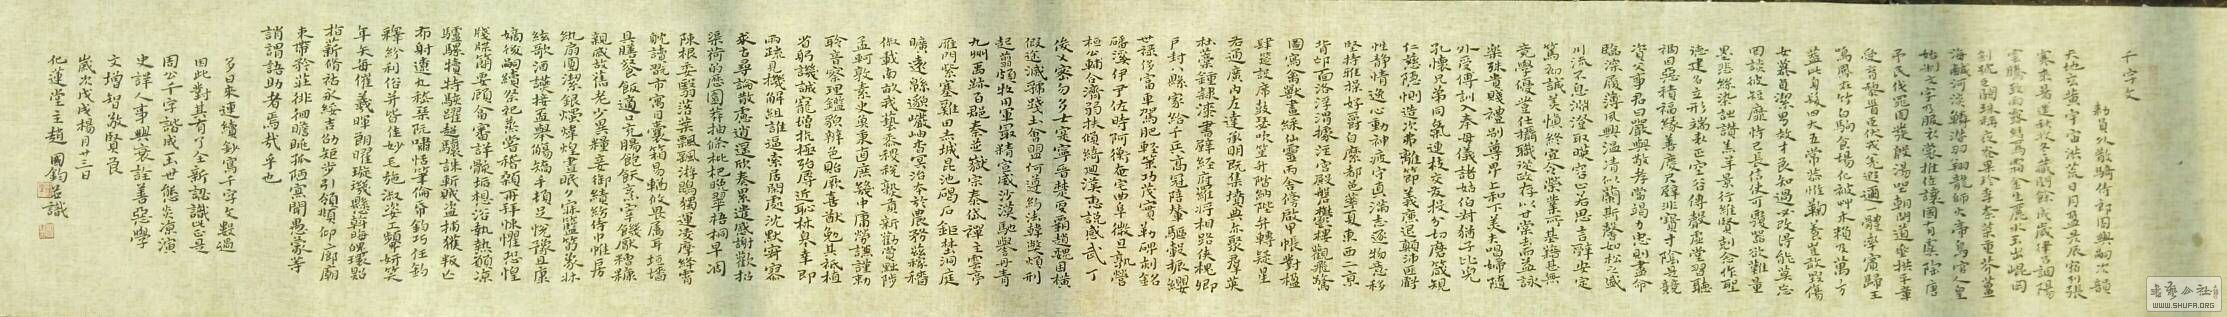 千字文
勅員外散騎侍郎周興嗣次韻
天地玄黃宇宙洪荒日月盈昃辰宿列張
寒來暑往秋收冬藏閏餘成歲律呂調陽
雲騰致雨露結為霜金生麗水玉出崑岡
劍號巨闕珠稱夜光菓珍李柰菜重芥薑
海鹹河淡鱗潛羽翔龍師火帝鳥官人皇
始制文字乃服衣裳推位讓國有虞陶唐
弔民伐罪周發殷湯坐朝問道垂拱平章
愛育黎首臣伏戎羌遐邇一體率賓歸王
鳴鳳在竹白駒食場化被艸木賴及萬方
蓋此身髮四大五常恭惟鞠養豈敢毀傷
女慕貞潔男效才良知過必改得能莫忘
罔談彼短靡恃己長信使可覆器欲難量
墨悲絲染詩讚羔羊景行維賢剋念作聖
德建名立形端表正空谷傳聲虛堂習聽
禍因惡積福緣善慶尺璧非寶寸陰是競
資父事君曰嚴與敬孝當竭力忠則盡命
臨深履薄夙興溫凊似蘭斯馨如松之盛
川流不息淵澄取暎容止若思言辭安定
篤初誠美慎終宜令榮業所基籍甚無
竟學優登仕攝職從政存以甘棠去而益詠
樂殊貴賤禮別尊卑上和下睦夫唱婦隨
外受傅訓入奉母儀諸姑伯叔猶子比兒
孔懷兄弟同氣連枝交友投分切磨箴規
仁慈隱惻造次弗離節義廉退顛沛匪虧
性靜情逸心動神疲守真滿志逐物意移
堅持雅操好爵自縻都邑華夏東西二京
背邙面洛浮渭據涇宮殿盤鬱樓觀飛驚
圖寫禽獸畫綵仙靈丙舍傍啟甲帳對楹
肆筵設席鼓瑟吹笙升階納陛弁轉疑星
右通廣內左達承明既集墳典亦聚群英
杜稾鍾隸漆書壁經府羅將相路俠槐卿
戶封八縣家給千兵高冠陪輦驅轂振纓
世祿侈富車駕肥輕策功茂實勒碑刻銘
磻溪伊尹佐時阿衡奄宅曲阜微旦孰營
桓公輔合濟弱扶傾綺迴漢惠說感武丁
俊乂密勿多士寔寧晉楚更霸趙魏困橫
假途滅虢踐土會盟何遵約法韓弊煩刑
起翦頗牧用軍最精宣威沙漠馳譽丹青
九州禹跡百郡秦并嶽宗泰岱禪主雲亭
雁門紫塞雞田赤城昆池碣石鉅野洞庭
曠遠綿邈巖岫杳冥治本於農務茲稼穡
俶載南畝我藝黍稷稅熟貢新勸賞黜陟
孟軻敦素史魚秉直庶幾中庸勞謙謹勑
聆音察理鑑貌辨色貽厥嘉猷勉其祗植
省躬譏誡寵增抗極殆辱近恥林皋幸即
兩疏見機解組誰逼索居閑處沈默寂寥
求古尋論散慮逍遙欣奏累遣慼謝歡招
渠荷的歷園莽抽條枇杷晚翠梧桐早凋
陳根委翳落葉飄颻游鵾獨運凌摩絳霄
耽讀翫市寓目囊箱易輶攸畏屬耳垣墻
具膳餐飯適口充腸飽飫烹宰飢厭糟糠
親戚故舊老少異糧妾御績紡侍巾帷房
紈扇圓潔銀燭煒煌晝眠夕寐藍筍象牀
絃歌酒讌接盃舉觴矯手頓足悅豫且康
嫡後嗣續祭祀烝嘗稽顙再拜悚懼恐惶
牋牒簡要顧答審詳骸垢想浴執熱願涼
驢騾犢特駭躍超驤誅斬賊盜捕獲叛亡
布射遼丸嵇琴阮嘯恬筆倫紙鈞巧任釣
釋紛利俗並皆佳妙毛施淑姿工顰妍笑
年矢每催羲暉朗曜璇璣懸斡晦魄環照
指薪修祜永綏吉劭矩步引領俯仰廊廟
束帶矜莊徘徊瞻眺孤陋寡聞愚蒙等
誚謂語助者焉哉乎也
多日來連續鈔寫千字文數過
因此對其有了全新認識此正是
周公千字諧成玉世態炎涼演
史詳人事興衰詮善惡學
文增智敬賢良
歲次戊戌楊月廿三日
化蓮堂主趙國鈞並識
書藝公社
WWW.SHUFA.ORG